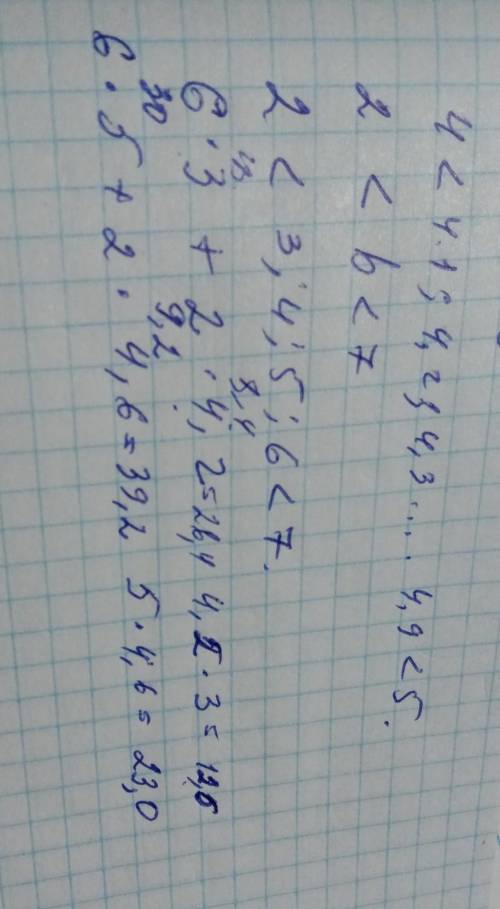 4 < 4.1; 4,2; 4,3 .... 4,9 < 5.
2 < b < 7
2 < 3; 4; 5; 6 < 7.
18 8,4
6 · 3 + 2 · 4,2 = 26,4 4,2 · 3 = 12,6
30 9,2
6 · 5 + 2 · 4,6 = 39,2 5 · 4,6 = 23,0